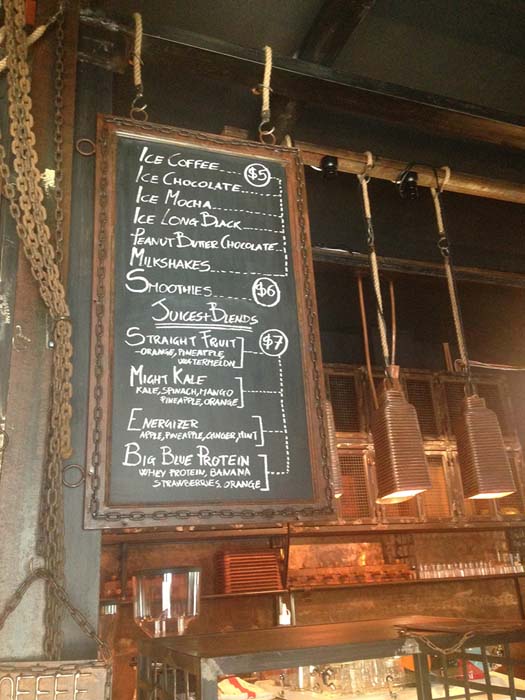 ICE COFFEE $5
ICE CHOCOLATE
ICE MOCHA
ICE LONG BLACK
PEANUT BUTTER CHOCOLATE
MILKSHAKES
SMOOTHIES $6
JUICES+BLENDS
STRAIGHT FRUIT $7
-ORANGE, PINEAPPLE
WATERMELON
MIGHT KALE
KALE, SPINACH, MANGO
PINEAPPLE, ORANGE
ENERGIZER
APPLE, PINEAPPLE, GINGER, MINT
BIG BLUE PROTEIN
WHEY PROTEIN, BANANA
STRAWBERRIES, ORANGE
OFFEE